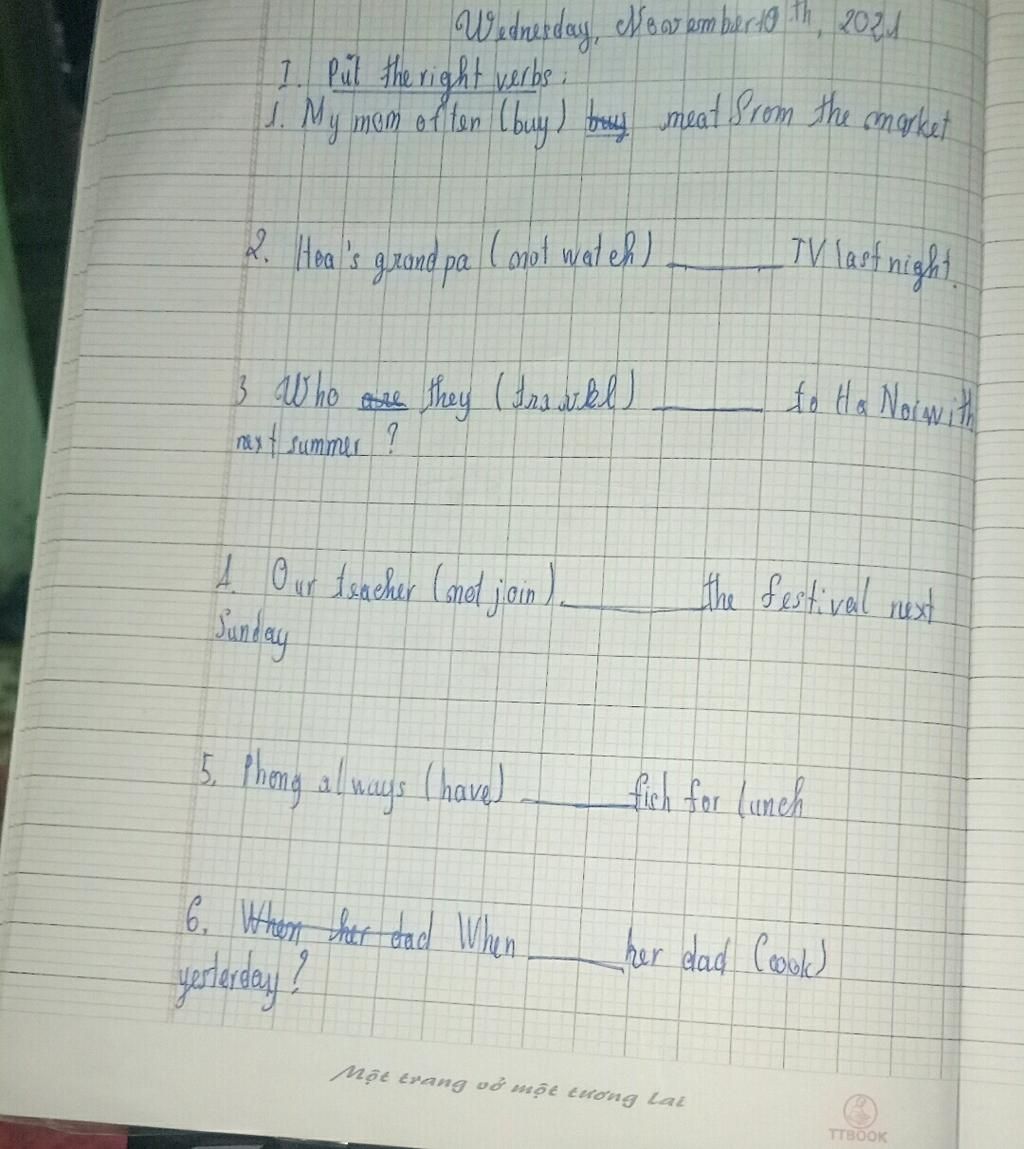 Wednesday, November 10th, 2021
I. Put the right verbs:
1. My mom often (buy) buy meat from the market
2. Hoa's grandpa (not watch) ______ TV last night.
3 Who are they (travel) ______ to Ha Noi with
next summer ?
4. Our teacher (not join). ______ the festival next
Sunday
5. Phong always (have) ______ fish for lunch
6. When her dad When ______ her dad (cook)
yesterday?
Một trang vở một tương lai
TTBOOK